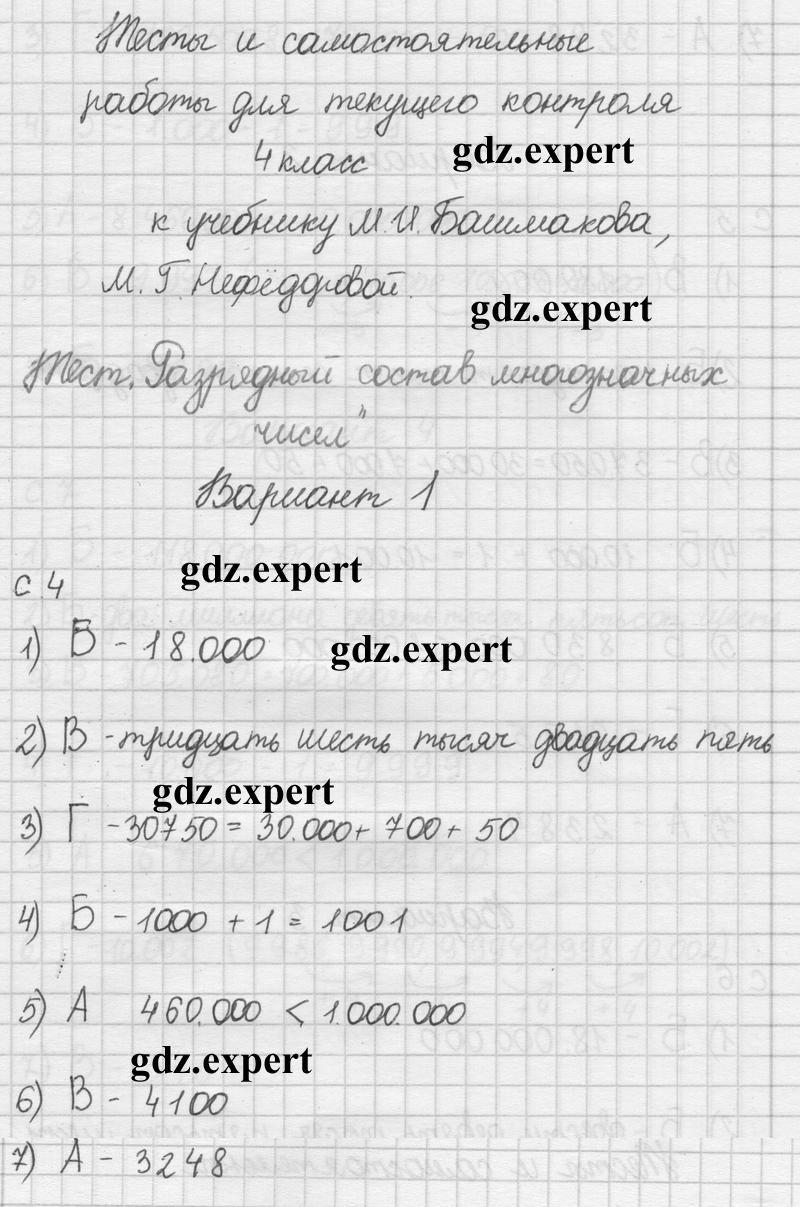 Тесты и самостоятельные
работы для текущего контроля
4 класс
gdz.expert
к учебнику М.И. Башмакова,
М.Г. Нефёдоровой.
gdz.expert
Тест. „Разрядный состав многозначных
чисел"
Вариант 1
gdz.expert
с. 4
1) Б - 18.000
gdz.expert
2) В - тридцать шесть тысяч двадцать пять
gdz.expert
3) Г - 30750 = 30.000 + 700 + 50
4) Б - 1000 + 1 = 1001
5) А 460.000 < 1.000.000
gdz.expert
6) В - 4100
7) А - 3248